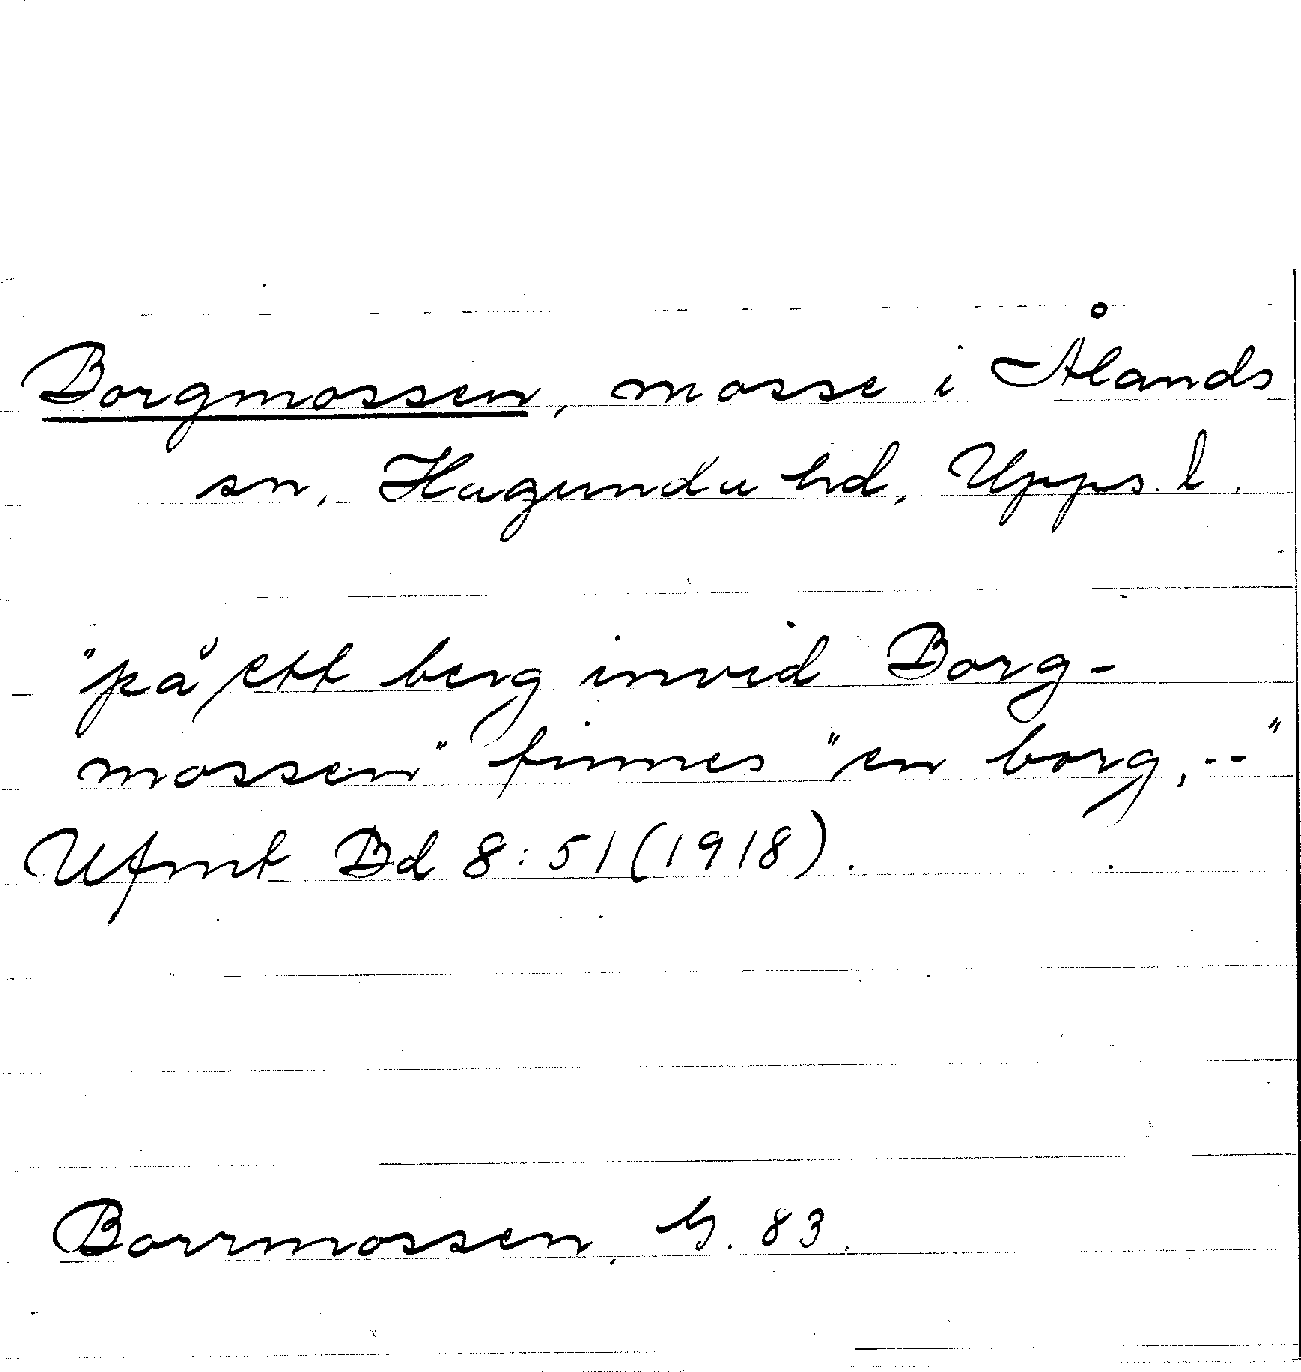 Borgmossen, mosse i Ålands
sn, Hagunda hd, Upps. l.
"på ett berg invid Borg-
mossen" finnes "en borg, --"
Ufmt Bd 8:51 (1918).
Borrmossen, G. 83.